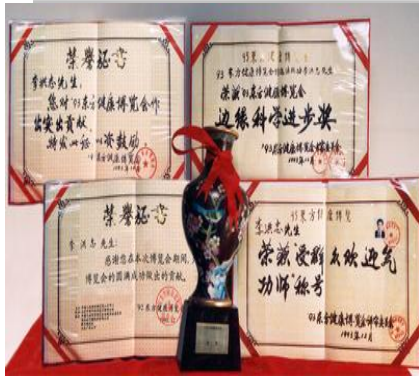 荣誉证书
李洪志先生：
您对'93东方健康博览会作
出突出贡献，
特发此证 以资鼓励
'93东方健康博览会
93东方健康博览会
李洪志先生
荣获'93东方健康博览会
边缘科学进步奖
'93东方健康博览会评审委员会
1993年12月
荣誉证书
李洪志先生：
感谢您在本次博览会期间，
博览会的圆满成功做出的贡献。
'92东方健康博览会
93东方健康博览
李洪志先生
荣获受群众欢迎气
功师称号
'93东方健康博览会评审委员会
1993年12月